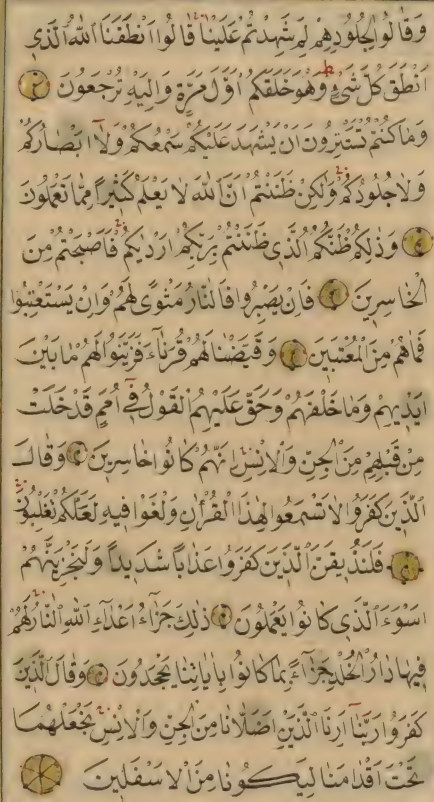 وَقَالُوا لِجُلُودِهِمْ لِمَ شَهِدْتُمْ عَلَيْنَا قَالُوا اَنْطَقَنَا اللّٰهُ الَّذِى
اَنْطَقَ كُلَّ شَىْءٍ وَهُوَ خَلَقَكُمْ اَوَّلَ مَرَّةٍ وَاِلَيْهِ تُرْجَعُونَ
وَمَا كُنْتُمْ تَسْتَتِرُونَ اَنْ يَشْهَدَ عَلَيْكُمْ سَمْعُكُمْ وَلَا اَبْصَارُكُمْ
وَلَا جُلُودُكُمْ وَلٰكِنْ ظَنَنْتُمْ اَنَّ اللّٰهَ لَا يَعْلَمُ كَثِيرًا مِمَّا تَعْمَلُونَ
وَذٰلِكُمْ ظَنُّكُمُ الَّذِى ظَنَنْتُمْ بِرَبِّكُمْ اَرْدٰيكُمْ فَاَصْبَحْتُمْ مِنَ
الْخَاسِرِينَ فَاِنْ يَصْبِرُوا فَالنَّارُ مَثْوًى لَهُمْ وَاِنْ يَسْتَعْتِبُوا
فَمَا هُمْ مِنَ الْمُعْتَبِينَ وَقَيَّضْنَا لَهُمْ قُرَنَاءَ فَزَيَّنُوا لَهُمْ مَا بَيْنَ
اَيْدِيهِمْ وَمَا خَلْفَهُمْ وَحَقَّ عَلَيْهِمُ الْقَوْلُ فِى اُمَمٍ قَدْ خَلَتْ
مِنْ قَبْلِهِمْ مِنَ الْجِنِّ وَالْاِنْسِ اِنَّهُمْ كَانُوا خَاسِرِينَ وَقَالَ
الَّذِينَ كَفَرُوا لَا تَسْمَعُوا لِهٰذَا الْقُرْاٰنِ وَالْغَوْا فِيهِ لَعَلَّكُمْ تَغْلِبُونَ
فَلَنُذِيقَنَّ الَّذِينَ كَفَرُوا عَذَابًا شَدِيدًا وَلَنَجْزِيَنَّهُمْ
اَسْوَءَ الَّذِى كَانُوا يَعْمَلُونَ ذٰلِكَ جَزَاءُ اَعْدَاءِ اللّٰهِ النَّارُ لَهُمْ
فِيهَا دَارُ الْخُلْدِ جَزَاءً بِمَا كَانُوا بِاٰيَاتِنَا يَجْحَدُونَ وَقَالَ الَّذِينَ
كَفَرُوا رَبَّنَا اَرِنَا الَّذَيْنِ اَضَلَّانَا مِنَ الْجِنِّ وَالْاِنْسِ نَجْعَلْهُمَا
تَحْتَ اَقْدَامِنَا لِيَكُونَا مِنَ الْاَسْفَلِينَ